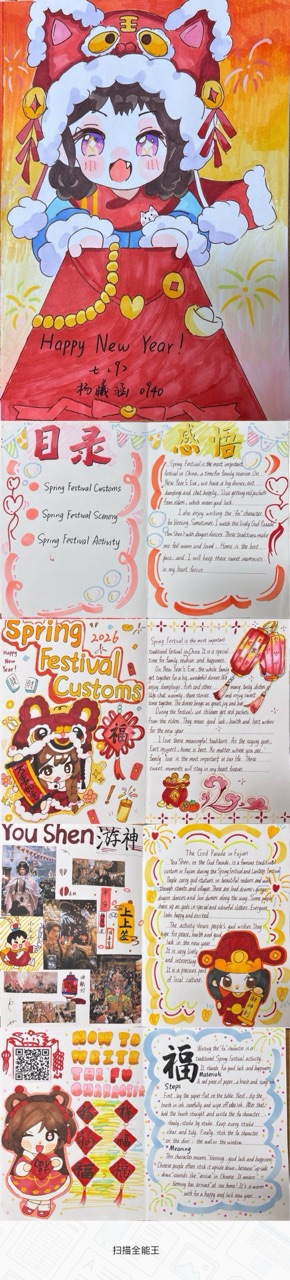 Happy New Year!
七〈9〉
杨曦涵 0940
目录
Spring Festival Customs
Spring Festival Scenery
Spring Festival Activity
感悟
Spring Festival is the most important
festival in China, a time for family reunion. On
New Year's Eve, we have a big dinner, eat
dumplings and chat happily. I also get red packets
from elders, with warm good luck.
I also enjoy writing the "fu" character
for blessing. Sometimes, I watch the lively God Parade
These traditions make
me feel warm and loved. Home is the best
place, and I will keep these sweet memories
in my heart forever.
Spring
2026
Festival
Customs
Happy
New
Year!
福
Spring Festival is the most important
traditional festival in China. It is a special
time for family reunion and happiness.
On New Year's Eve, the whole family
get together for a big, wonderful dinner. We
enjoy dumplings, fish and other
time together. The dinner brings us great joy and love.
During the festival, our children get red packets
from the elders. They mean good luck, health and best wishes
for the new year.
I love these meaningful traditions. As the saying goes,
East or west, home is best. No matter where we are,
family love is the most important in our life. These
sweet moments will stay in my heart forever.
You Shen 游神
上上签
The God Parade in Fujian
You Shen, or the God Parade, is a famous traditional
custom in Fujian during the Spring Festival and Lantern Festival.
People carry god statues in beautiful sedans and walk
through streets and villages. There are loud drums, dragon
dances and lion dances along the way. Some people
dress up as gods in special and colorful clothes. Everyone
looks happy and excited.
The activity shows people's good wishes. They
hope for peace, health and good
luck in the new year.
It is very lively
and interesting.
It is a precious part
of local culture.
HOW TO
WRITE
THE FU
CHARACTER
福
福
福
福
福
福
福
Writing the "fu" character is a
traditional Spring Festival activity.
It stands for good luck and happiness.
Materials
Steps
First, lay the paper flat on the table. Next, dip the
brush in ink carefully and wipe off extra ink. After that,
hold the brush straight and write the fu character
slowly, stroke by stroke. Keep every stroke
clear and tidy. Finally, stick the fu character
on the door, the wall or the window.
Meaning
This character means blessing, good luck and happiness.
Chinese people often stick it upside down, because "upside
down" sounds like "arrive" in Chinese. It means
blessing has arrived at our home! It's a warm
wish for a happy and lucky new year.
扫描全能王